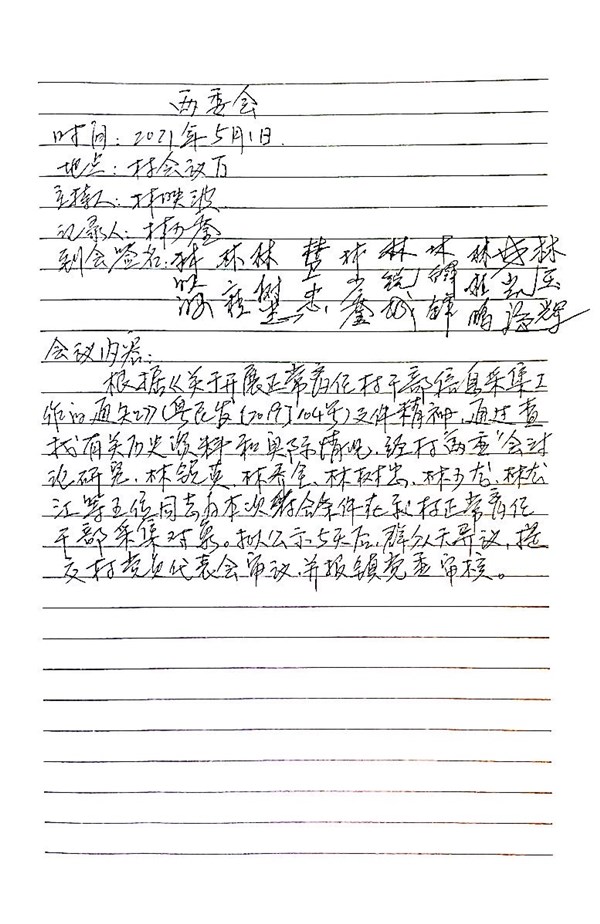 两委会
时间：2021年5月1日.
地点：村会议万
主持人：林映波
记录人：林少奎
到会签名：林 林 林 林 林 林 林 林
会议内容：
根据《关于开展正常离任村干部信息采集工
作的通知》（粤民发〔2019〕104号）文件精神，通过查
找有关历史资料和实际情况，经村两委"会讨
论研究，林锐英、林香全、林树忠、林少龙、林龙
江等五位同志为本次符合条件在我村正常离任
干部采集对象。拟公示5天后，群众无异议，提
交村党员代表会审议，并报镇党委审核。